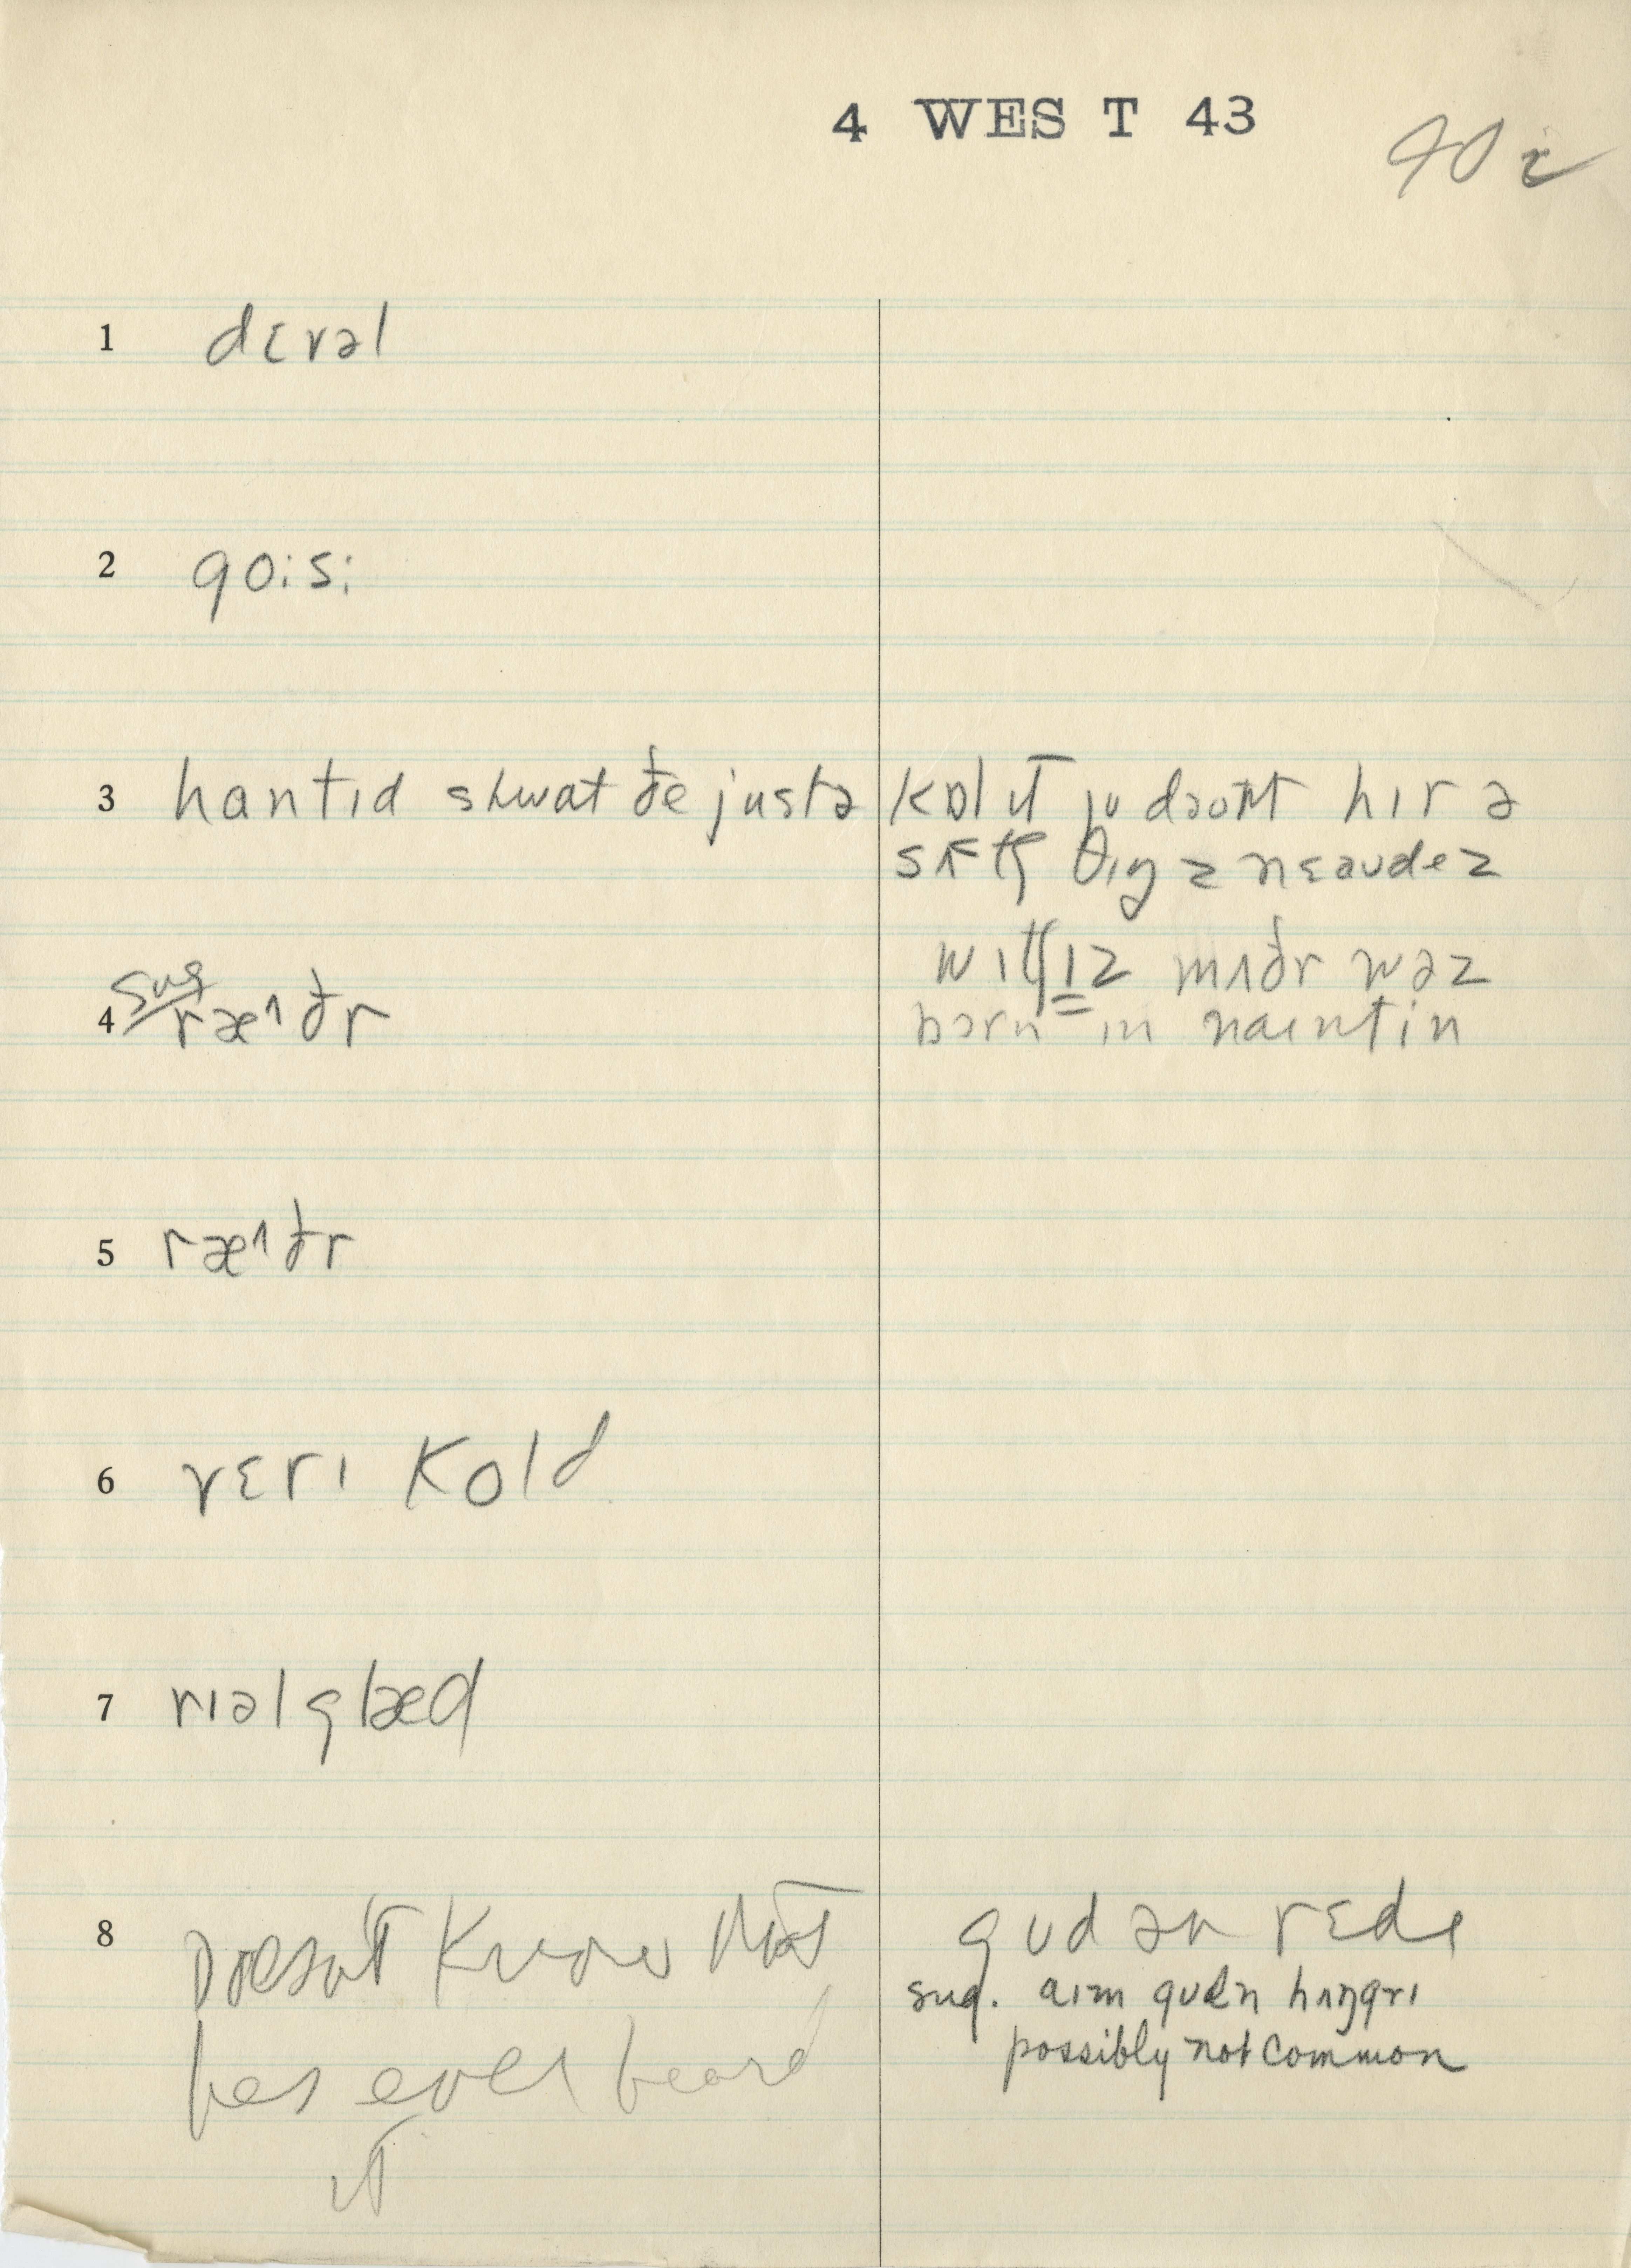 4 WEST 43
90 i
1 dɛvəl
2 gois:
3 hantɪd shwat ðe justə kɒl ɪt ju dəont hɪr ə
sʌtʃ θɪŋz nɛəudez
witʃɪz mʌðr wəz
born in naintin
4 sug ræ^ðr
5 ræ^ðr
6 vɛrɪ kold
7 rɪəl glæd
8 Doesn't know that
has ever heard
it
gud ən rɛdɪ
sug. aɪm gudn hʌŋgrɪ
possibly not common